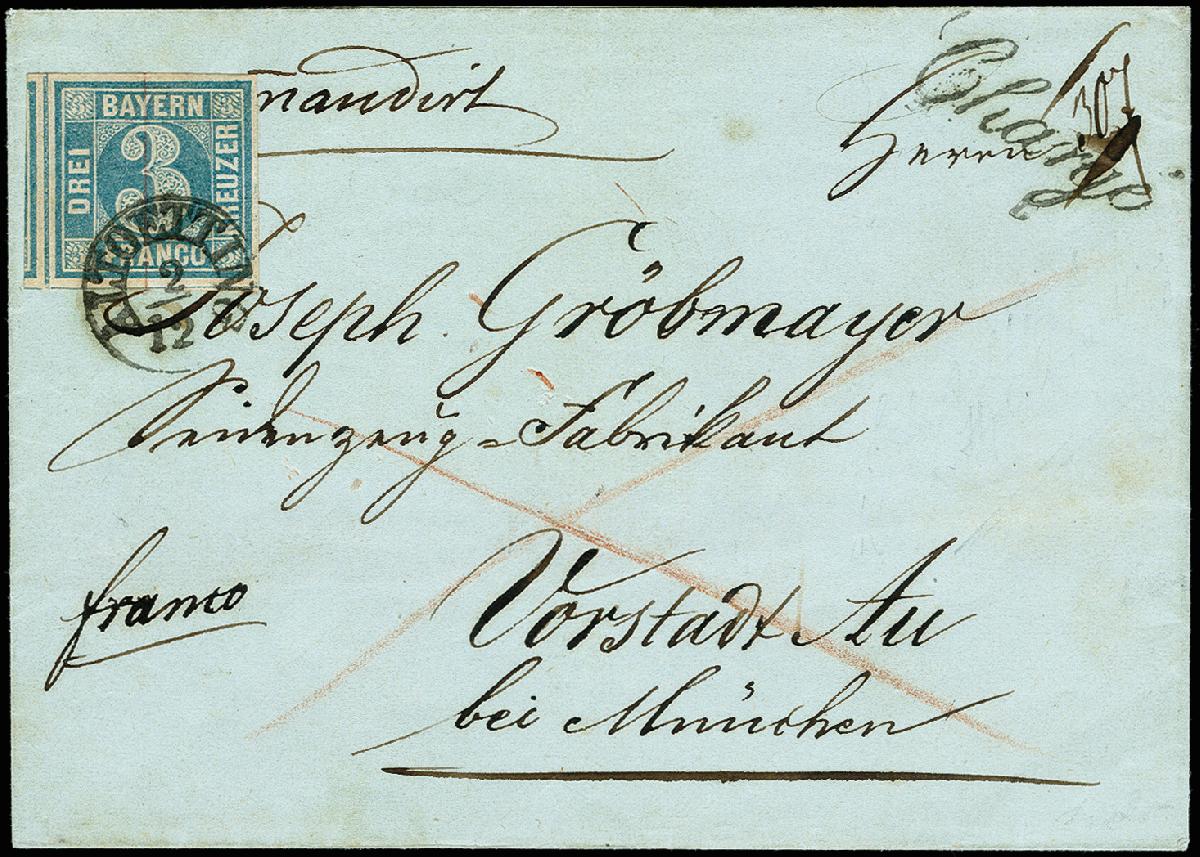 BAYERN
DREI
3
KREUZER
FRANCO
ALTOETTING
2
12
mandirt
Chargé
Herrn
Joseph Gröbmayer
Seidenzeug-Fabrikant
franco
Vorstadt Au
bei München